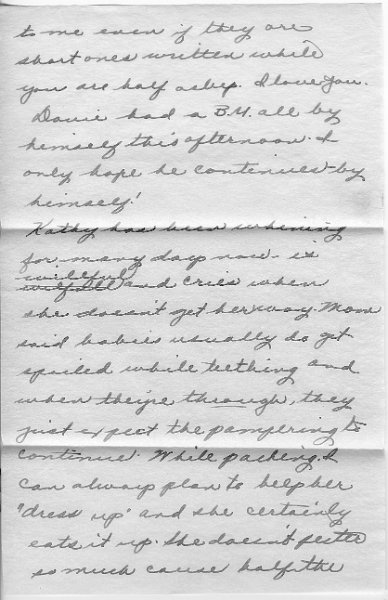 to me even if they are
short ones written while
you are half asleep. I love you.
Davie had a B.M. all by
himself this afternoon. I
only hope he continues - by
himself!
Kathy has been whining
for many days now - is
willful
wilfull and cries when
she doesn't get her way. Mom
said babies usually do get
spoiled while teething and
when they're through, they
just expect the pampering to
continue. While packing, I
can always plan to help her
"dress up" and she certainly
eats it up. She doesn't pester
so much cause half the